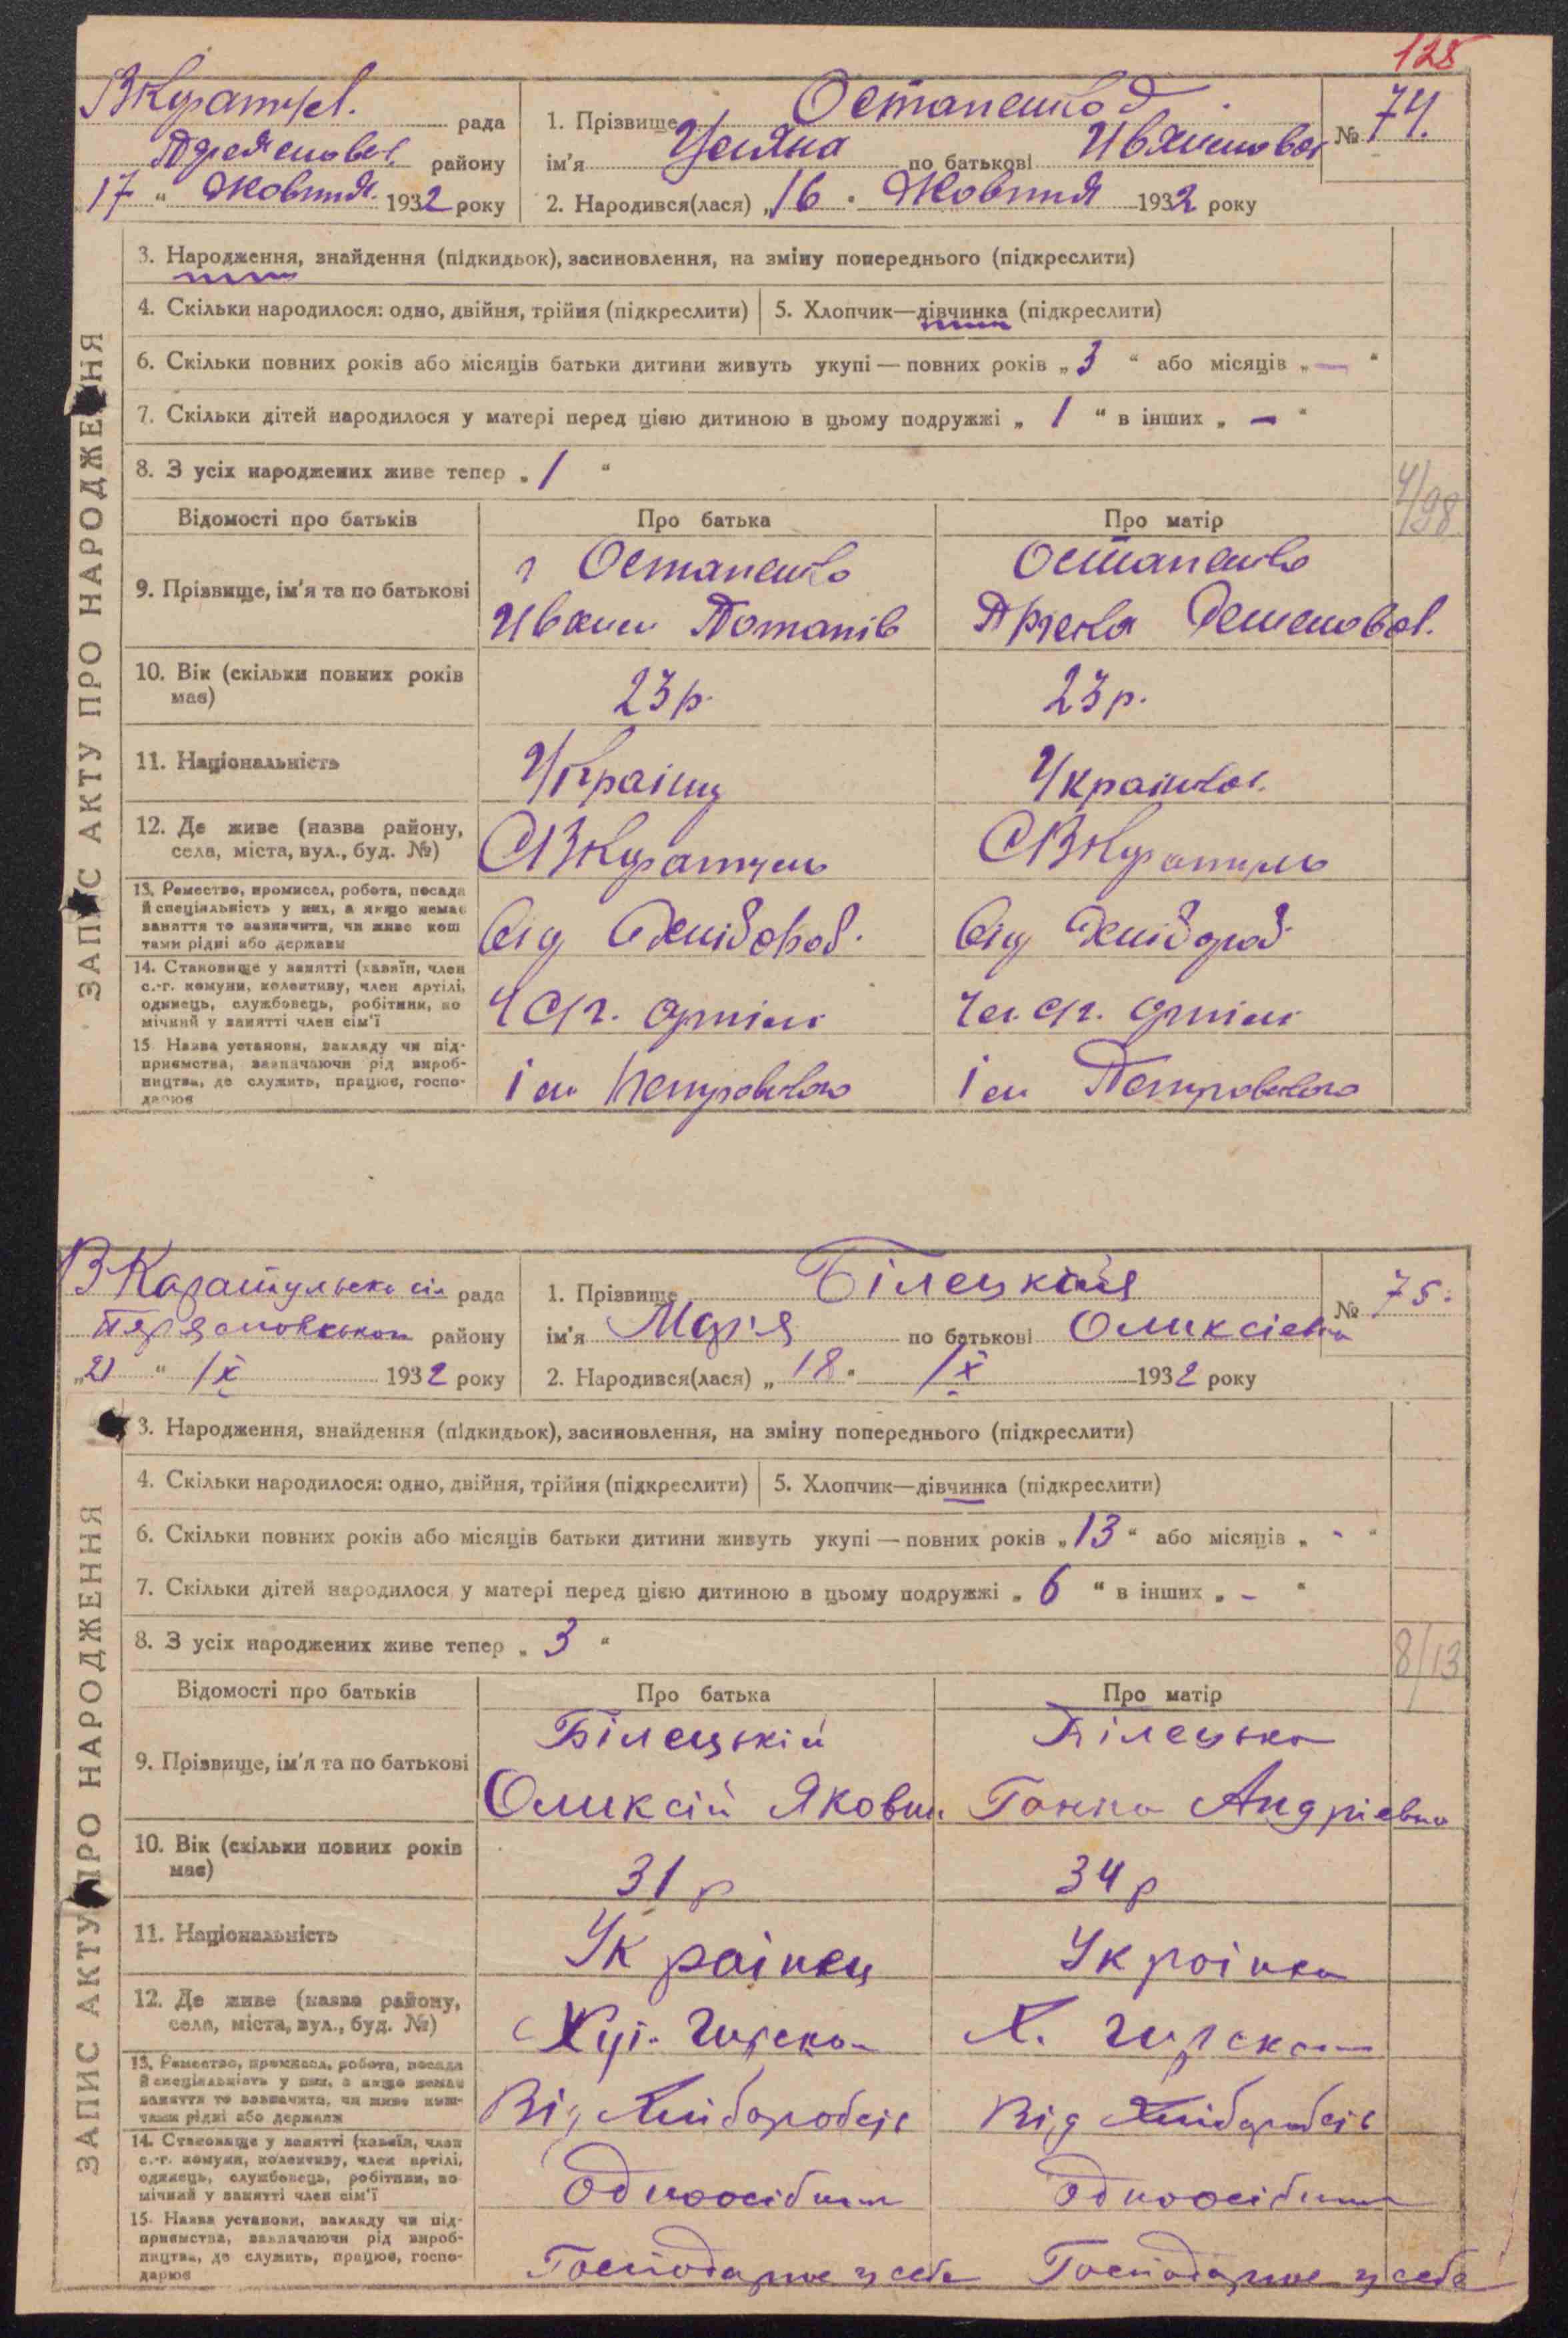 128
ВКаратул. рада
Переяславськ. району
"17 " Жовтня 1932 року
1. Прізвище Остапенко
ім'я Уляна по батькові Ивановна
№ 74.
2. Народився(лася) „16 " Жовтня 1932 року
ЗАПИС АКТУ ПРО НАРОДЖЕННЯ
3. Народження, знайдення (підкидьок), засиновлення, на зміну попереднього (підкреслити)
4. Скільки народилося: одно, двійня, трійня (підкреслити) 5. Хлопчик—дівчинка (підкреслити)
6. Скільки повних років або місяців батьки дитини живуть укупі — повних років „ 3 “ або місяців „ — “
7. Скільки дітей народилося у матері перед цією дитиною в цьому подружжі „ 1 “ в інших „ – “
8. З усіх народжених живе тепер „ 1 “
4/98
Відомості про батьків Про батька Про матір
9. Прізвище, ім'я та по батькові
Остапенко
Иван Потапів
Остапенко
Семеновна
10. Вік (скільки повних років має)
23 р.
23 р.
11. Національність
Українц
Українка
12. Де живе (назва району, села, міста, вул., буд. №)
С ВКаратуль
С ВКаратуль
13. Ремество, промисел, робота, посада й спеціяльність у них, а якщо немає заняття то зазначити, чи живе коштами рідні або держави
Від Хлібороб.
Від Хлібороб
14. Становище у занятті (хазяїн, член с.-г. комуни, колективу, член артілі, одинець, службовець, робітник, помічний у занятті член сім'ї
Ч СГ. артілі
Чл. СГ. артілі
15. Назва установи, закладу чи підприємства, зазначаючи рід виробництва, де служить, працює, господарює
ім Петровского
ім Петровского
В Каратульска сіл рада
Переясловськом району
„21 “ IX 1932 року
1. Прізвище Білецкая
ім'я Марія по батькові Оликсієвна
№ 75.
2. Народився(лася) „ 18 " IX 1932 року
ЗАПИС АКТУ ПРО НАРОДЖЕННЯ
3. Народження, знайдення (підкидьок), засиновлення, на зміну попереднього (підкреслити)
4. Скільки народилося: одно, двійня, трійня (підкреслити) 5. Хлопчик—дівчинка (підкреслити)
6. Скільки повних років або місяців батьки дитини живуть укупі — повних років „ 13 “ або місяців „ - “
7. Скільки дітей народилося у матері перед цією дитиною в цьому подружжі „ 6 “ в інших „ – “
8. З усіх народжених живе тепер „ 3 “
8/13
Відомості про батьків Про батька Про матір
9. Прізвище, ім'я та по батькові
Білецькій
Оликсій Якович
Білецька
Ганна Андрієвна
10. Вік (скільки повних років має)
31 р
34 р
11. Національність
Українец
Українка
12. Де живе (назва району, села, міста, вул., буд. №)
13. Ремество, промисел, робота, посада й спеціяльність у них, а якщо немає заняття то зазначити, чи живе коштами рідні або держави
Від Хліборобсів
Від Хліборобсів
14. Становище у занятті (хазяїн, член с.-г. комуни, колективу, член артілі, одинець, службовець, робітник, помічний у занятті член сім'ї
Одноосібник
Одноосібник
15. Назва установи, закладу чи підприємства, зазначаючи рід виробництва, де служить, працює, господарює
Господарює у себе
Господарює у себе